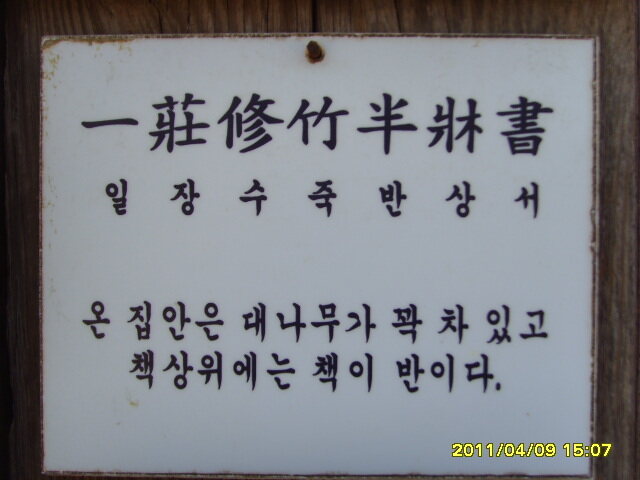 一莊修竹半牀書
일 장 수 죽 반 상 서
온 집안은 대나무가 꽉 차 있고
책상위에는 책이 반이다.
2011/04/09 15:07